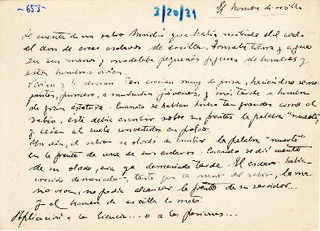 -653-
3/20/21
El hombre de arcilla
Se cuenta de un sabio que había recibido del cielo
el don de crear esclavos de arcilla. Tomaba tierra y agua
en sus manos y modelaba pequeñas figuras de hombres y
estos hombres vivían.
Vivían y le servían. Pero crecían muy de prisa, haciéndose
primero, y muchachos jóvenes, y más tarde hombres
de gran estatura. Cuando se habían hecho tan grandes como el
sabio, este debía escribir sobre sus frentes la palabra "muerte",
y caían al suelo convertidos en polvo.
Un día, el sabio se olvidó de escribir la palabra "muerte"
en la frente de uno de sus esclavos. Cuando se dió cuenta
de su olvido, era ya demasiado tarde. El esclavo había
crecido demasiado, la mano del sabio, la
no podía alcanzar la frente de su servidor...
Y el hombre de arcilla lo mató.
Aplicación a la ciencia... o a las pasiones...